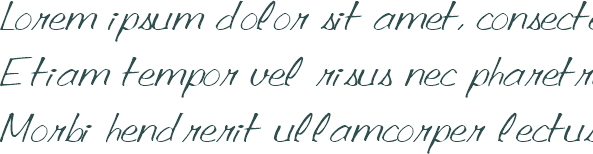 Lorem ipsum dolor sit amet, consecte
Etiam tempor vel risus nec pharetr
Morbi hendrerit ullamcorper lectus